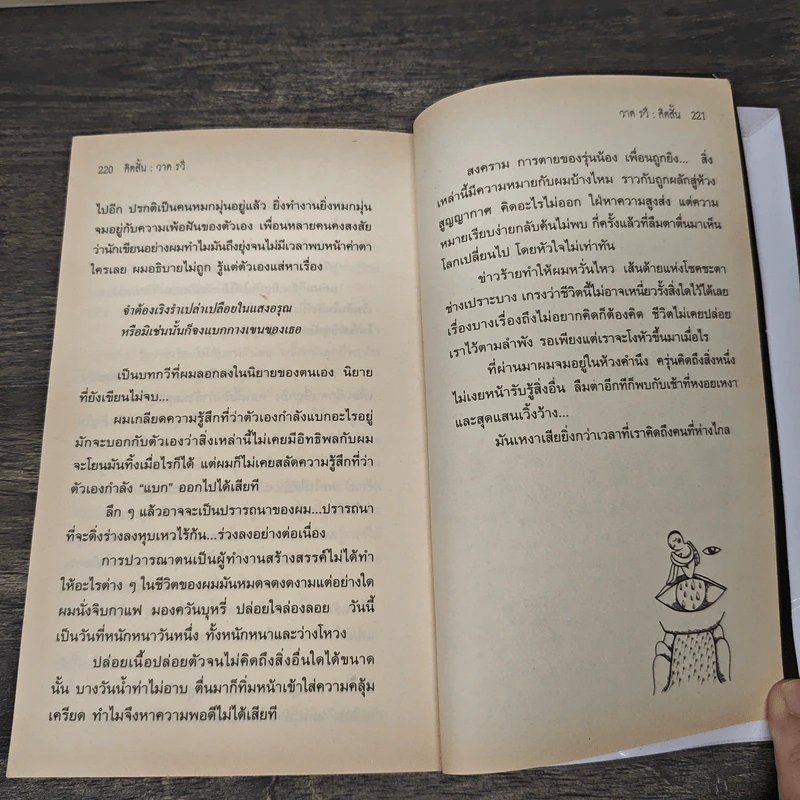 220 คิดสั้น : วาด รวี
ไปอีก ปรกติเป็นคนหมกมุ่นอยู่แล้ว ยิ่งทำงานยิ่งหมกมุ่น
จมอยู่กับความเพ้อฝันของตัวเอง เพื่อนหลายคนคงสงสัย
ว่านักเขียนอย่างผมทำไมมันถึงยุ่งจนไม่มีเวลาพบหน้าค่าตา
ใครเลย ผมอธิบายไม่ถูก รู้แต่ตัวเองแส่หาเรื่อง
จำต้องเริงรำเปล่าเปลือยในแสงอรุณ
หรือมิเช่นนั้นก็จงแบกกางเขนของเธอ
เป็นบทกวีที่ผมลอกลงในนิยายของตนเอง นิยาย
ที่ยังเขียนไม่จบ...
ผมเกลียดความรู้สึกที่ว่าตัวเองกำลังแบกอะไรอยู่
มักจะบอกกับตัวเองว่าสิ่งเหล่านี้ไม่เคยมีอิทธิพลกับผม
จะโยนมันทิ้งเมื่อไรก็ได้ แต่ผมก็ไม่เคยสลัดความรู้สึกที่ว่า
ตัวเองกำลัง “แบก” ออกไปได้เสียที
ลึก ๆ แล้วอาจจะเป็นปรารถนาของผม...ปรารถนา
ที่จะดิ่งร่างลงหุบเหวไร้ก้น...ร่วงลงอย่างต่อเนื่อง
การปวารณาตนเป็นผู้ทำงานสร้างสรรค์ไม่ได้ทำ
ให้อะไรต่าง ๆ ในชีวิตของผมมันหมดจดงดงามแต่อย่างใด
ผมนั่งจิบกาแฟ มองควันบุหรี่ ปล่อยใจล่องลอย วันนี้
เป็นวันที่หนักหนาวันหนึ่ง ทั้งหนักหนาและว่างโหวง
ปล่อยเนื้อปล่อยตัวจนไม่คิดถึงสิ่งอื่นใดได้ขนาด
นั้น บางวันน้ำท่าไม่อาบ ตื่นมาก็ทิ่มหน้าเข้าใส่ความคลุ้ม
เครียด ทำไมจึงหาความพอดีไม่ได้เสียที
วาด รวี : คิดสั้น 221
สงคราม การตายของรุ่นน้อง เพื่อนถูกยิง... สิ่ง
เหล่านี้มีความหมายกับผมบ้างไหม ราวกับถูกผลักสู่ห้วง
สูญญากาศ คิดอะไรไม่ออก ใฝ่หาความสูงส่ง แต่ความ
หมายเรียบง่ายกลับค้นไม่พบ กี่ครั้งแล้วที่ลืมตาตื่นมาเห็น
โลกเปลี่ยนไป โดยหัวใจไม่เท่าทัน
ข่าวร้ายทำให้ผมหวั่นไหว เส้นด้ายแห่งโชคชะตา
ช่างเปราะบาง เกรงว่าชีวิตนี้ไม่อาจเหนี่ยวรั้งสิ่งใดไว้ได้เลย
เรื่องบางเรื่องถึงไม่อยากคิดก็ต้องคิด ชีวิตไม่เคยปล่อย
เราไว้ตามลำพัง รอเพียงแต่เราจะโงหัวขึ้นมาเมื่อไร
ที่ผ่านมาผมจมอยู่ในห้วงคำนึง ครุ่นคิดถึงสิ่งหนึ่ง
ไม่เงยหน้ารับรู้สิ่งอื่น ลืมตาอีกทีก็พบกับเช้าที่หงอยเหงา
และสุดแสนเวิ้งว้าง...
มันเหงาเสียยิ่งกว่าเวลาที่เราคิดถึงคนที่ห่างไกล